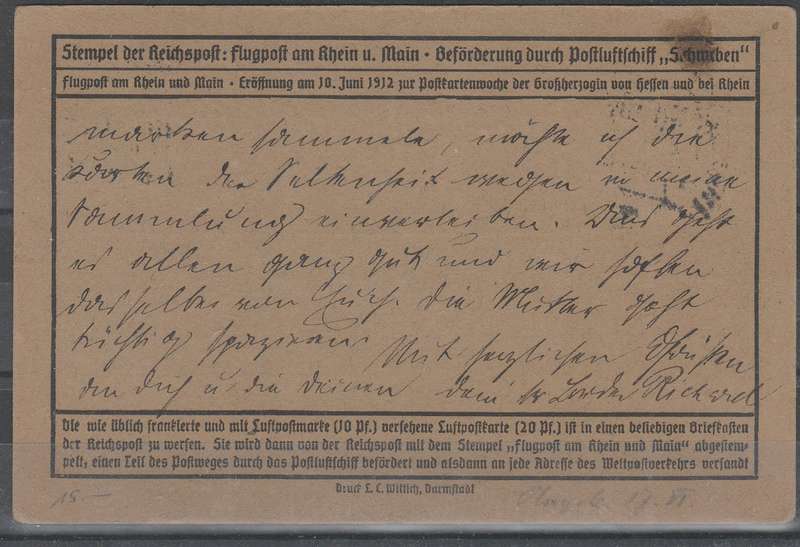 Stempel der Reichspost: Flugpost am Rhein u. Main · Beförderung durch Postluftschiff „Schwaben“
Flugpost am Rhein und Main · Eröffnung am 10. Juni 1912 zur Postkartenwoche der Großherzogin von Hessen und bei Rhein
marken sammele, möchte ich die
Karten der Seltenheit wegen in meine
Sammlung einverleiben. Uns geht
es allen ganz gut und wir hoffen
dasselbe von Euch. Die Mutter geht
tüchtig spazieren. Mit herzlichen Grüßen
an dich u. die Deinen dein Bruder Richard
Die wie üblich frankierte und mit Luftpostmarke (10 Pf.) versehene Luftpostkarte (20 Pf.) ist in einen beliebigen Briefkasten
der Reichspost zu werfen. Sie wird dann von der Reichspost mit dem Stempel „Flugpost am Rhein und Main“ abgestem-
pelt, einen Teil des Postweges durch das Postluftschiff befördert und alsdann an jede Adresse des Weltpostverkehrs versandt
Druck L. C. Wittich, Darmstadt
15.—